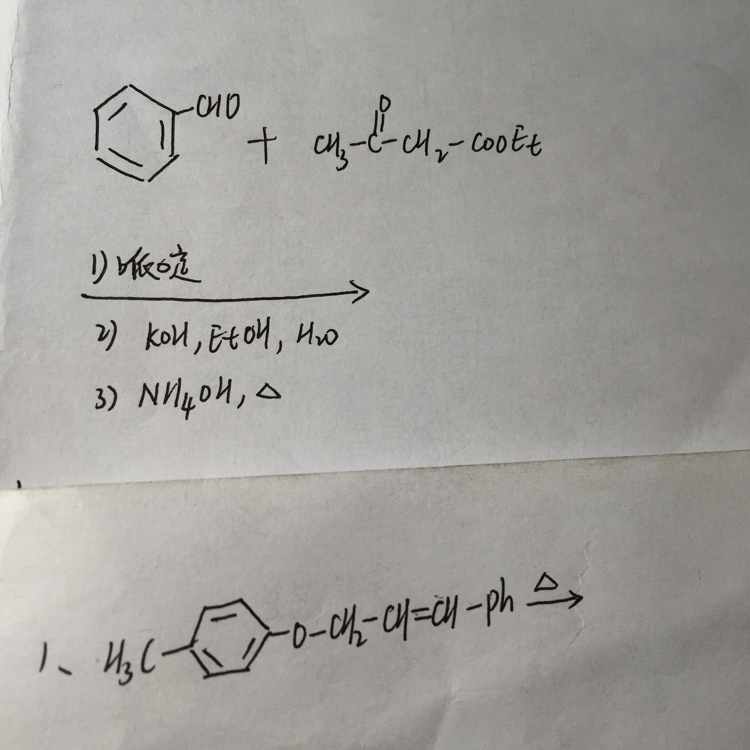 CHO + CH₃-C(=O)-CH₂-COOEt
1) 哌啶
2) KOH, EtOH, H₂O
3) NH₄OH, △
1、 H₃C- -O-CH₂-CH=CH-Ph △